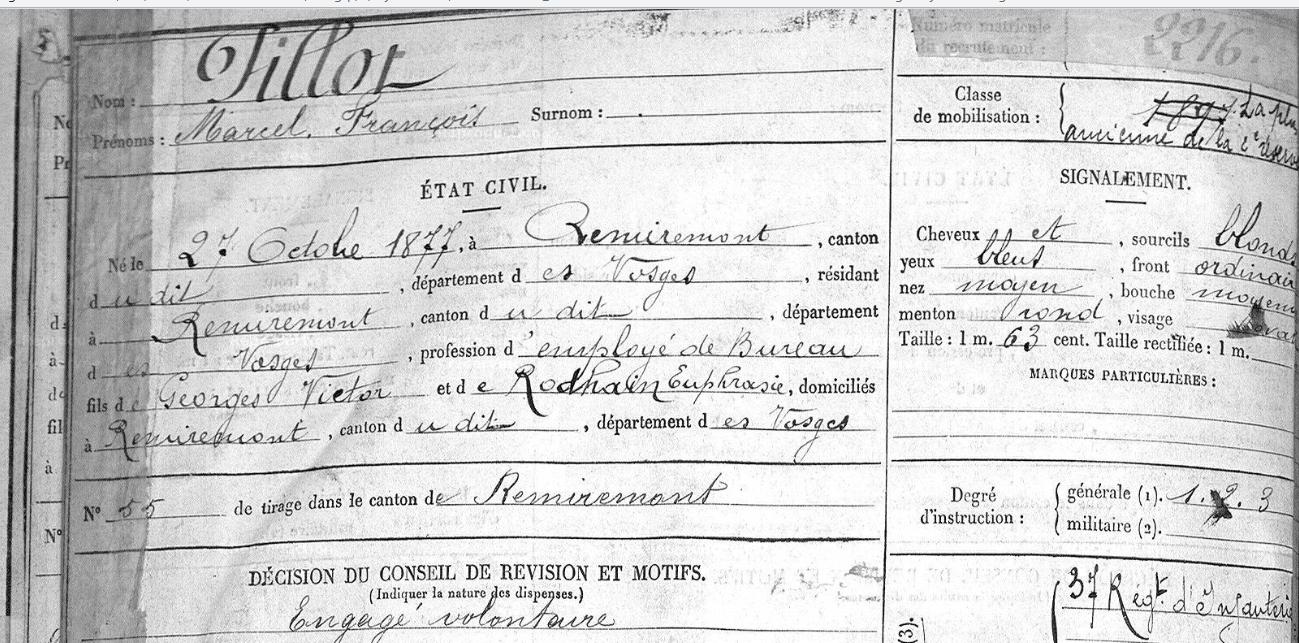 Tillot
Nom :
Prénoms : Marcel. François Surnom :
ÉTAT CIVIL.
Né le 27 Octobre 1877, à Remiremont, canton
du dit, département des Vosges, résidant
à Remiremont, canton du dit, département
des Vosges, profession d'employé de Bureau
fils de Georges Victor et de Rodhain Euphrasie, domiciliés
à Remiremont, canton du dit, département des Vosges
N° 55 de tirage dans le canton de Remiremont
DÉCISION DU CONSEIL DE REVISION ET MOTIFS.
(Indiquer la nature des dispenses.)
Engagé volontaire
Numéro matricule
du recrutement : 2216.
Classe
de mobilisation : 1897. La plus
ancienne de la
SIGNALEMENT.
Cheveux et, sourcils blonds
yeux bleus, front ordinair
nez moyen, bouche moyenn
menton rond, visage oval
Taille : 1 m. 63 cent. Taille rectifiée : 1 m.
MARQUES PARTICULIÈRES :
Degré
d'instruction :
générale (1). 1. 2. 3
militaire (2).
37 Regt d'Infanteri
(3).